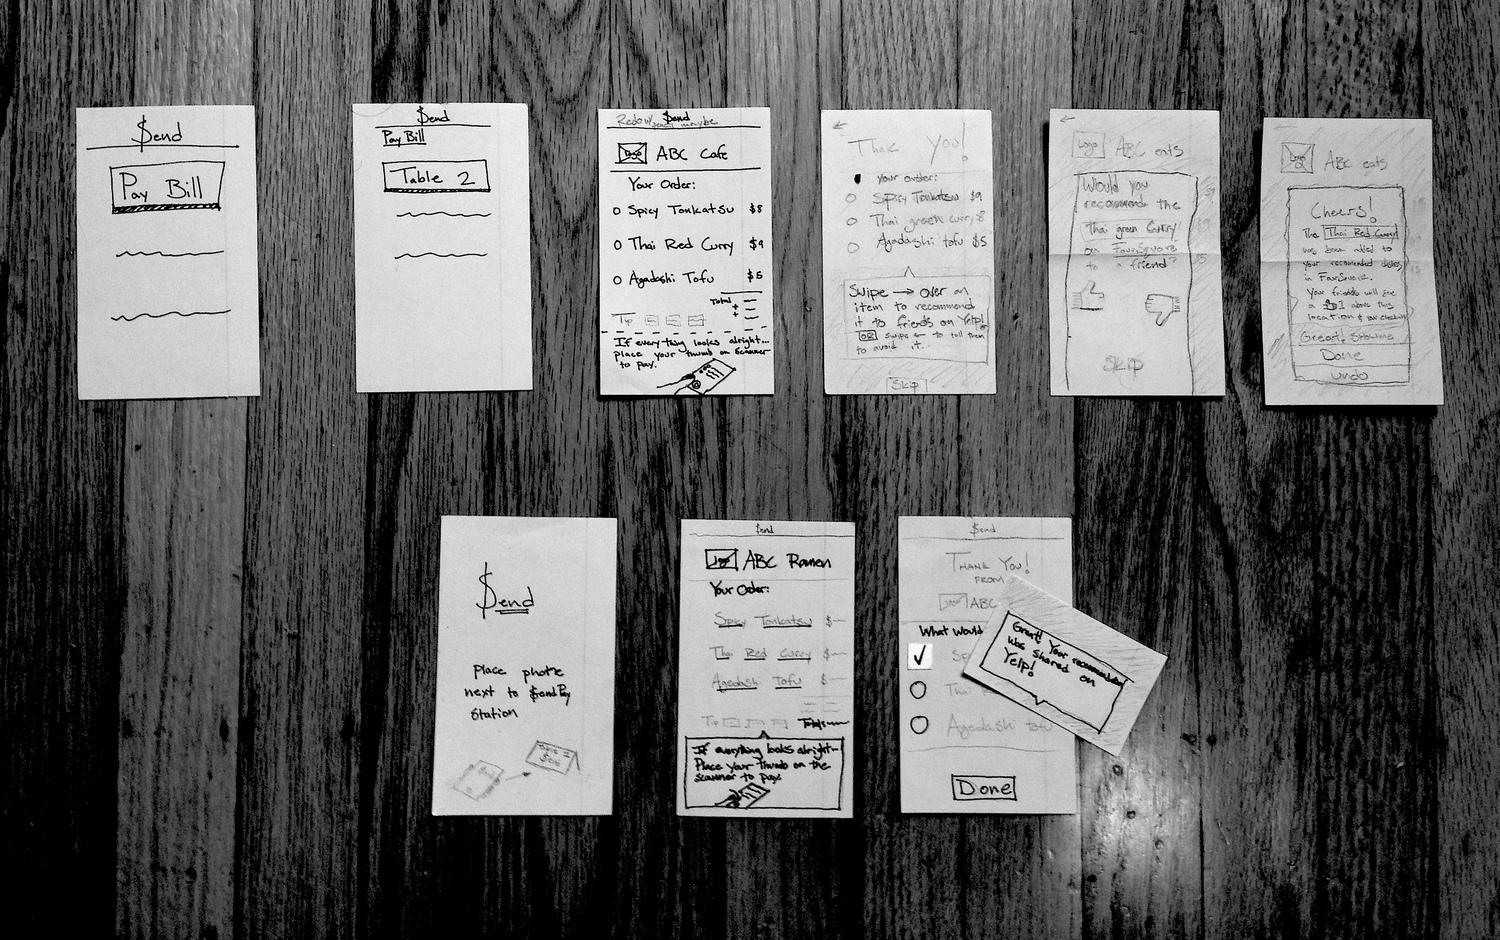 $end
Pay Bill
$end
Pay Bill
Table 2
$end
Redo w/ maybe
Logo ABC Cafe
Your Order:
O Spicy Tonkatsu $8
O Thai Red Curry $9
O Agadashi Tofu $5
Total
+
+
Tip
If everything looks alright...
place your thumb on scanner
to pay.
←
Thank You!
your order:
Spicy Tonkatsu $9
Thai green curry 8
Agadashi tofu $5
Swipe → over an
item to recommend
it to friends on Yelp!
OR swipe ← to tell them
to avoid it.
Skip
←
Logo ABC eats
Would you
recommend the
Thai green Curry
on FourSquare
to a friend?
Skip
Logo ABC eats
Cheers!
The Thai Red Curry
has been added to
your recomended dishes
in FourSquare.
Your friends will see
a $D1 above this
location & your checkin
Great! Showme
Done
undo
$end
place phone
next to $endPay
Station
$end
ABC Ramen
Your Order:
Spicy Tonkatsu $
Thai Red Curry $
Agedashi Tofu $
Tip Total
If everything looks alright-
Place your thumb on the
scanner to pay.
$end
THANK YOU!
FROM
Logo ABC
What Would
Sp
Thai
Agadashi tofu
Done
Great! Your recommendation
was shared on
Yelp!